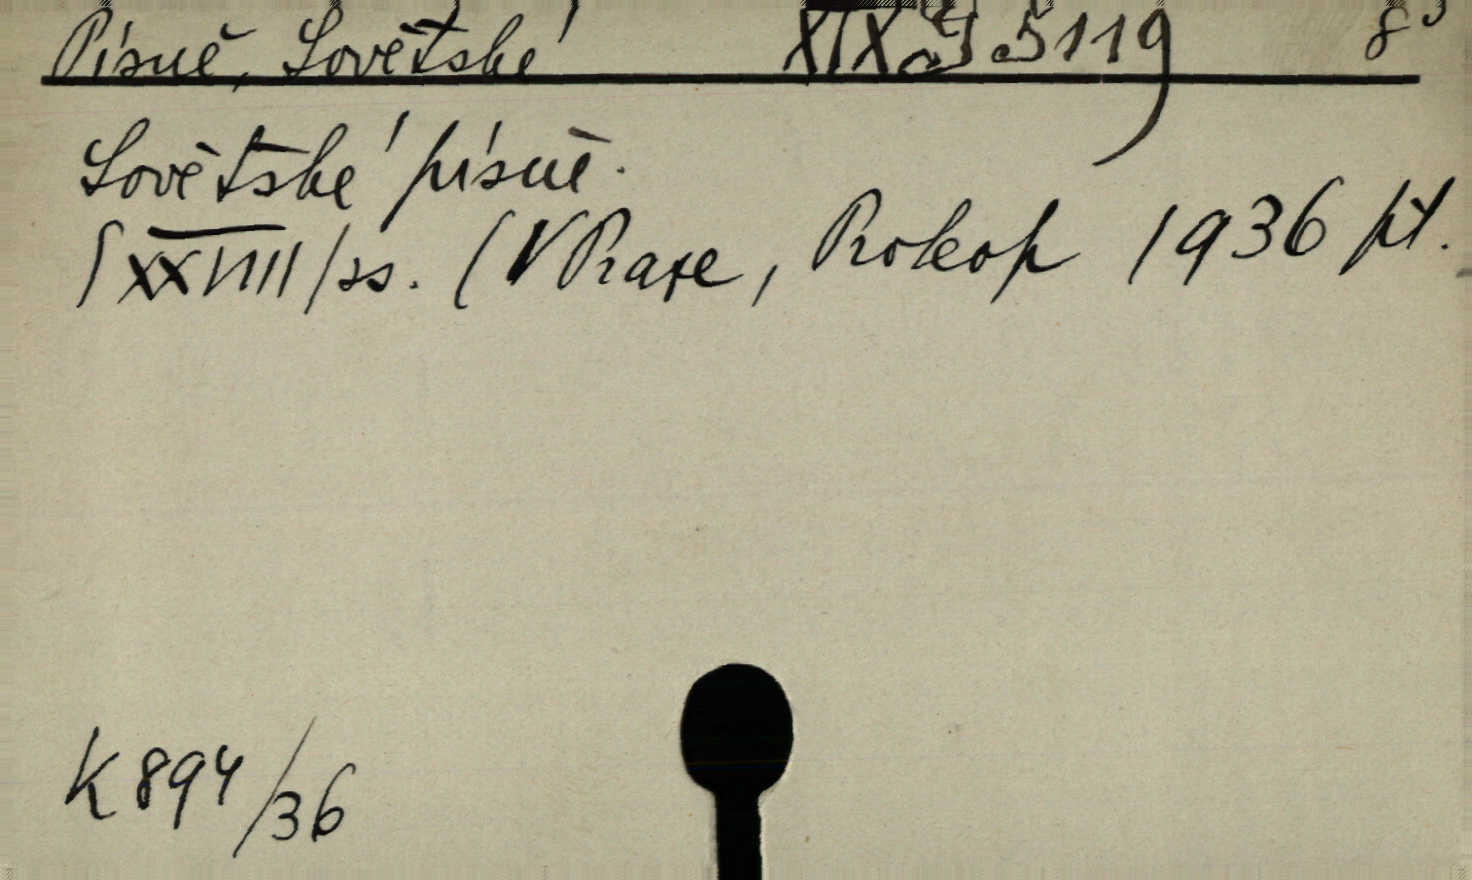 Písně, Sovětské XIX.J.5119 8°
Sovětské písně.
/XXVIIII/ss. (V Praze, Prokop 1936 př.
K 894/36